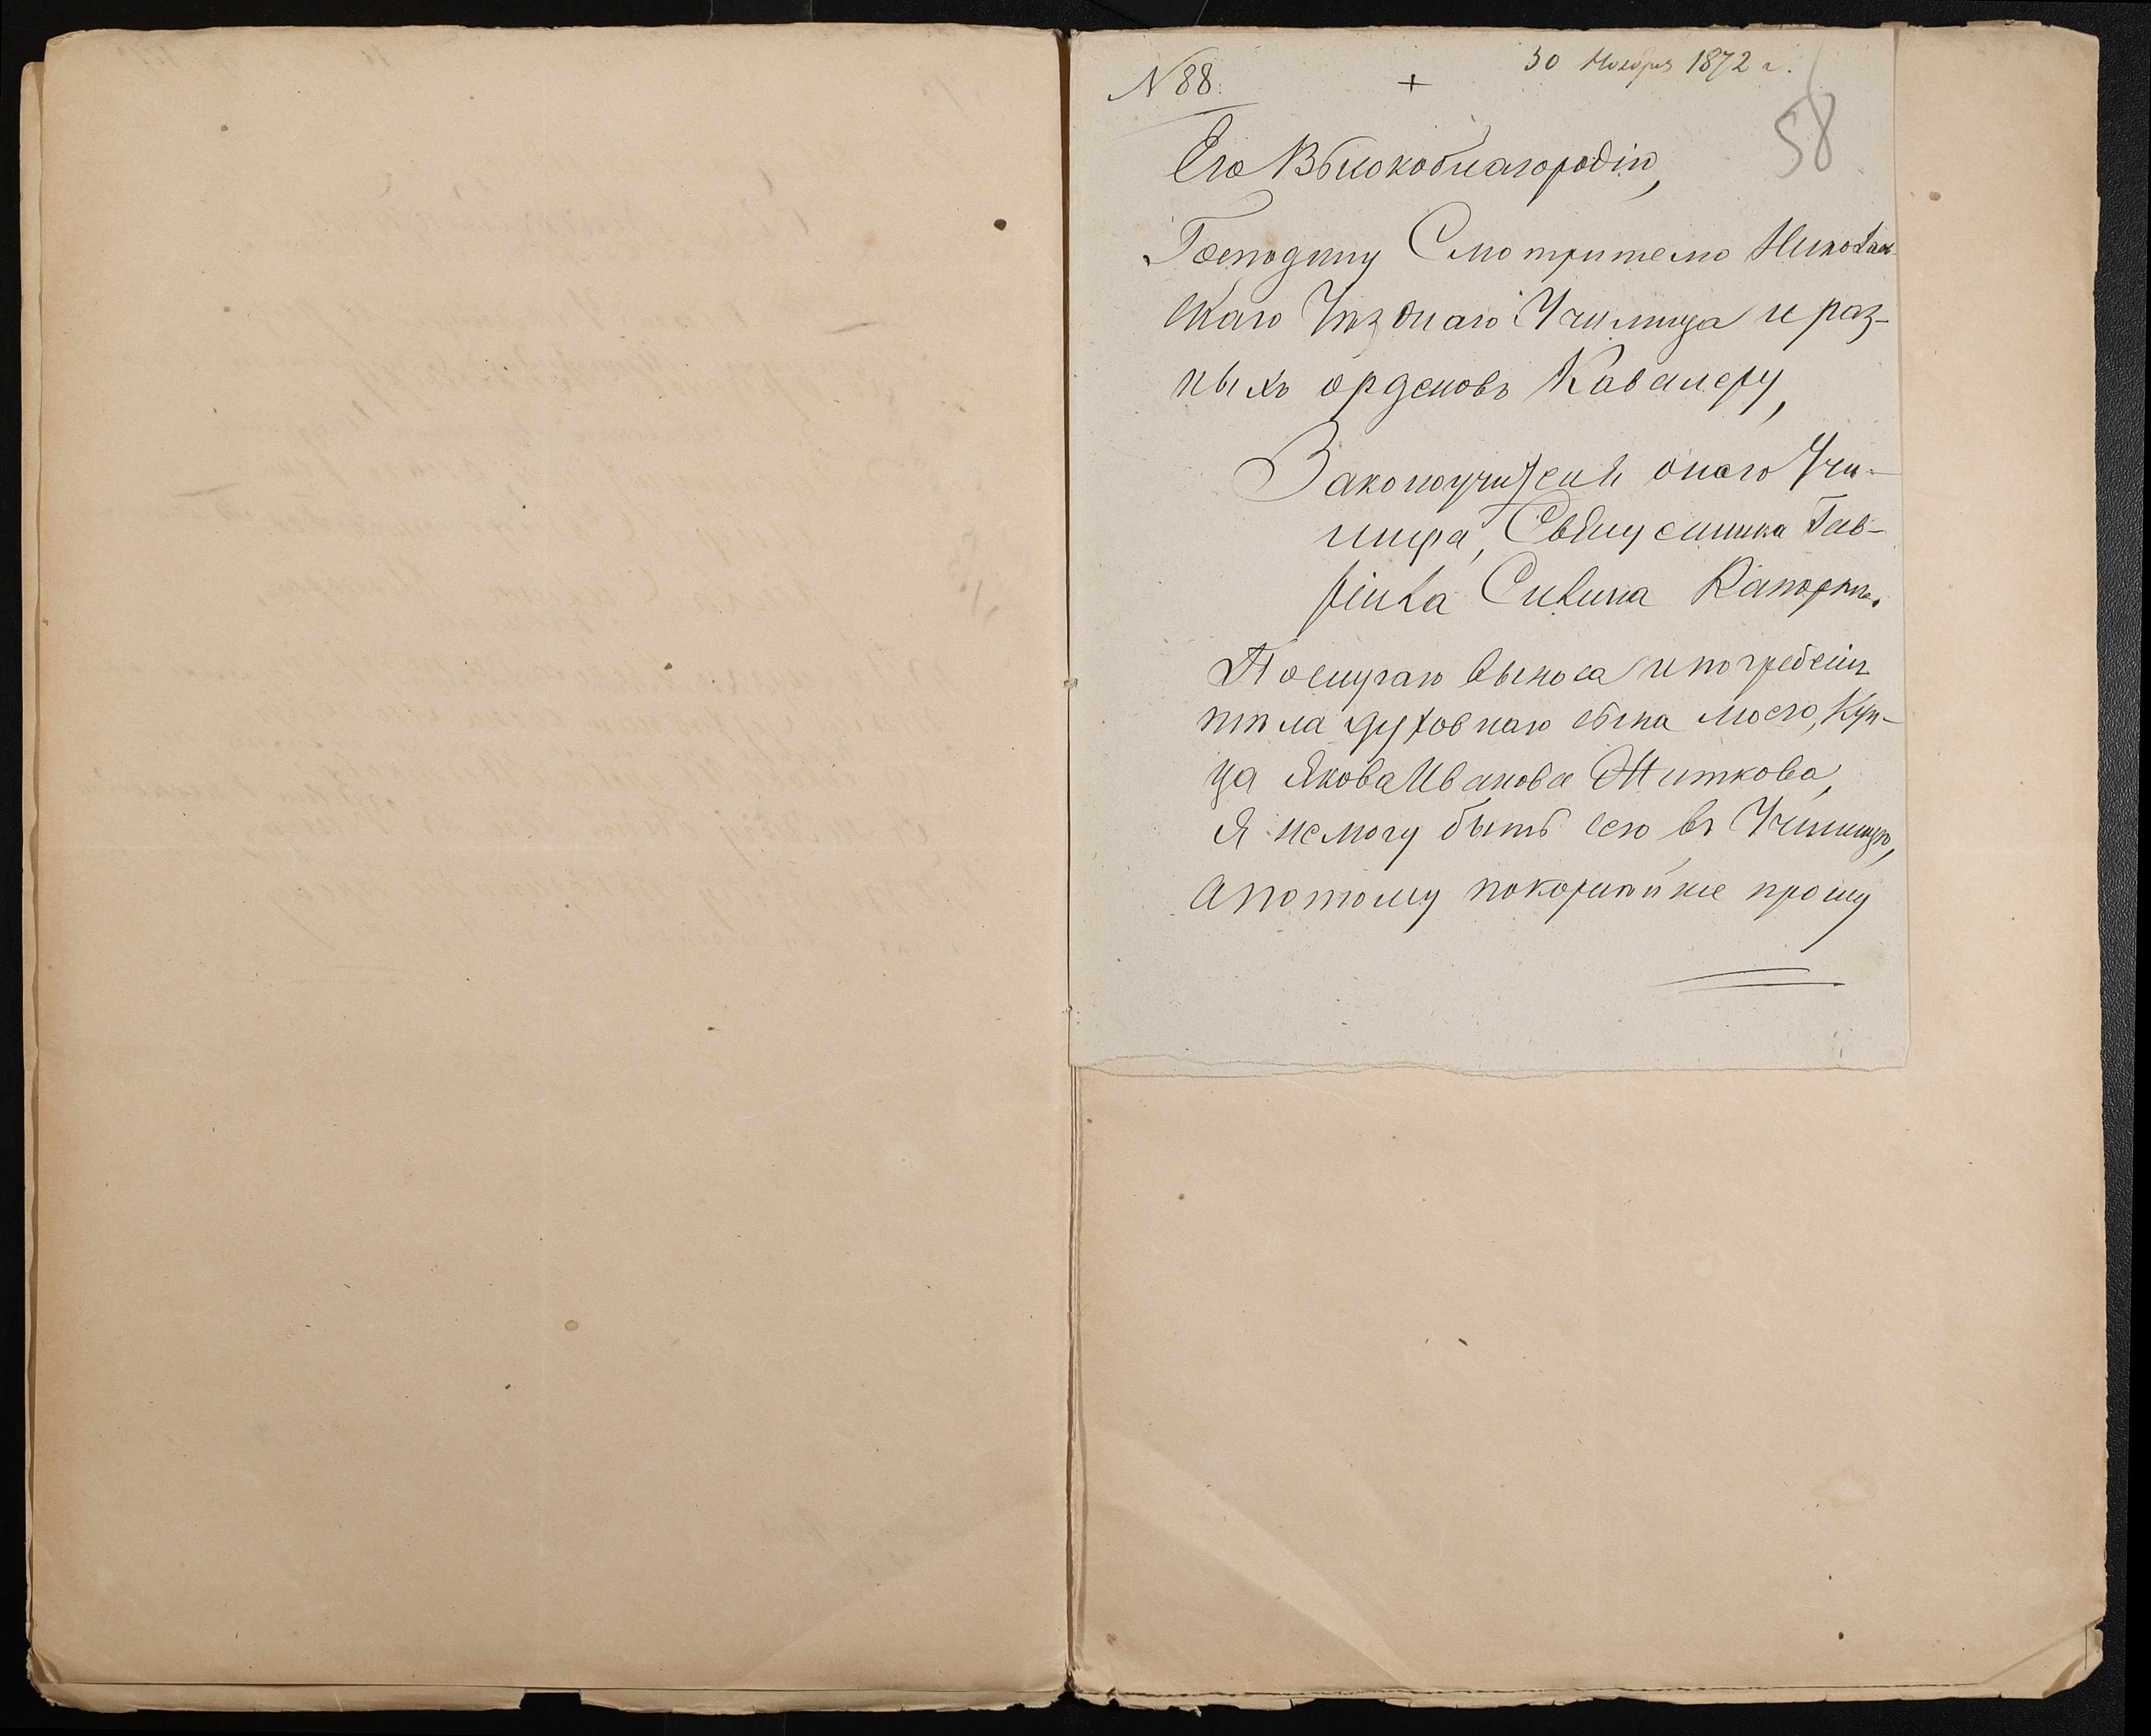 N 88.
+
30 Ноября 1872 г.
58
Его Высокоблагородію,
Господину Смотрителю Николаев-
скаго Уѣзднаго Училища и раз-
ныхъ орденовъ Кавалеру,
Законоучителя онаго Учи-
лища, Священника Гав-
ріила Сивина Рапортъ.
По случаю выноса и погребенія
тѣла духовнаго сына моего, Куп-
ца Якова Иванова Житкова,
я немогу быть сего въ Училищѣ,
а потому покорнѣйше прошу